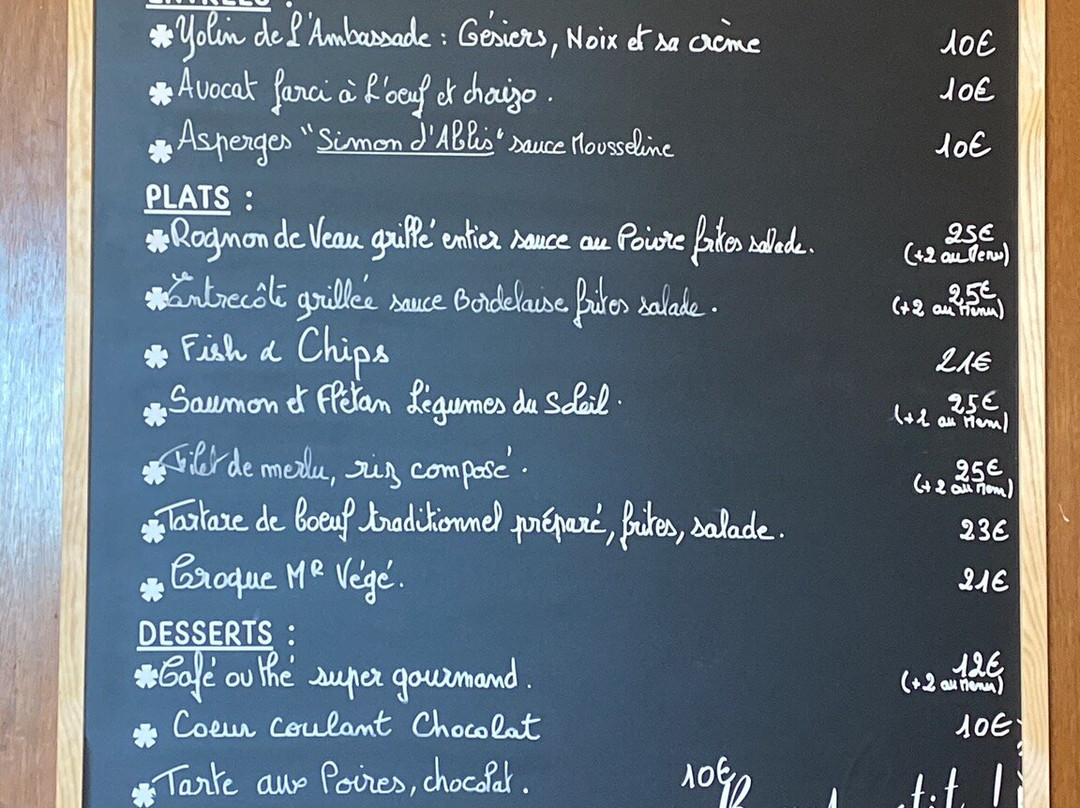 ENTRÉES :
Yolin de l'Ambassade : Gésiers, Noix et sa crème 10€
Avocat farci à l'oeuf et chorizo . 10€
Asperges "Simon d'Ablis" sauce Mousseline 10€
PLATS :
Rognon de Veau grillé entier sauce au Poivre frites salade. 25€
(+2 au Menu)
Entrecôte grillée sauce Bordelaise frites salade . 25€
(+2 au Menu)
Fish & Chips 21€
Saumon et Flétan Légumes du Soleil . 25€
(+2 au Menu)
Filet de merlu, riz composé . 25€
(+2 au Menu)
Tartare de boeuf traditionnel préparé, frites, salade . 23€
Croque Mr Végé. 21€
DESSERTS :
Café ou thé super gourmand . 12€
(+2 au Menu)
Coeur coulant Chocolat 10€
Tarte aux Poires, chocolat . 10€